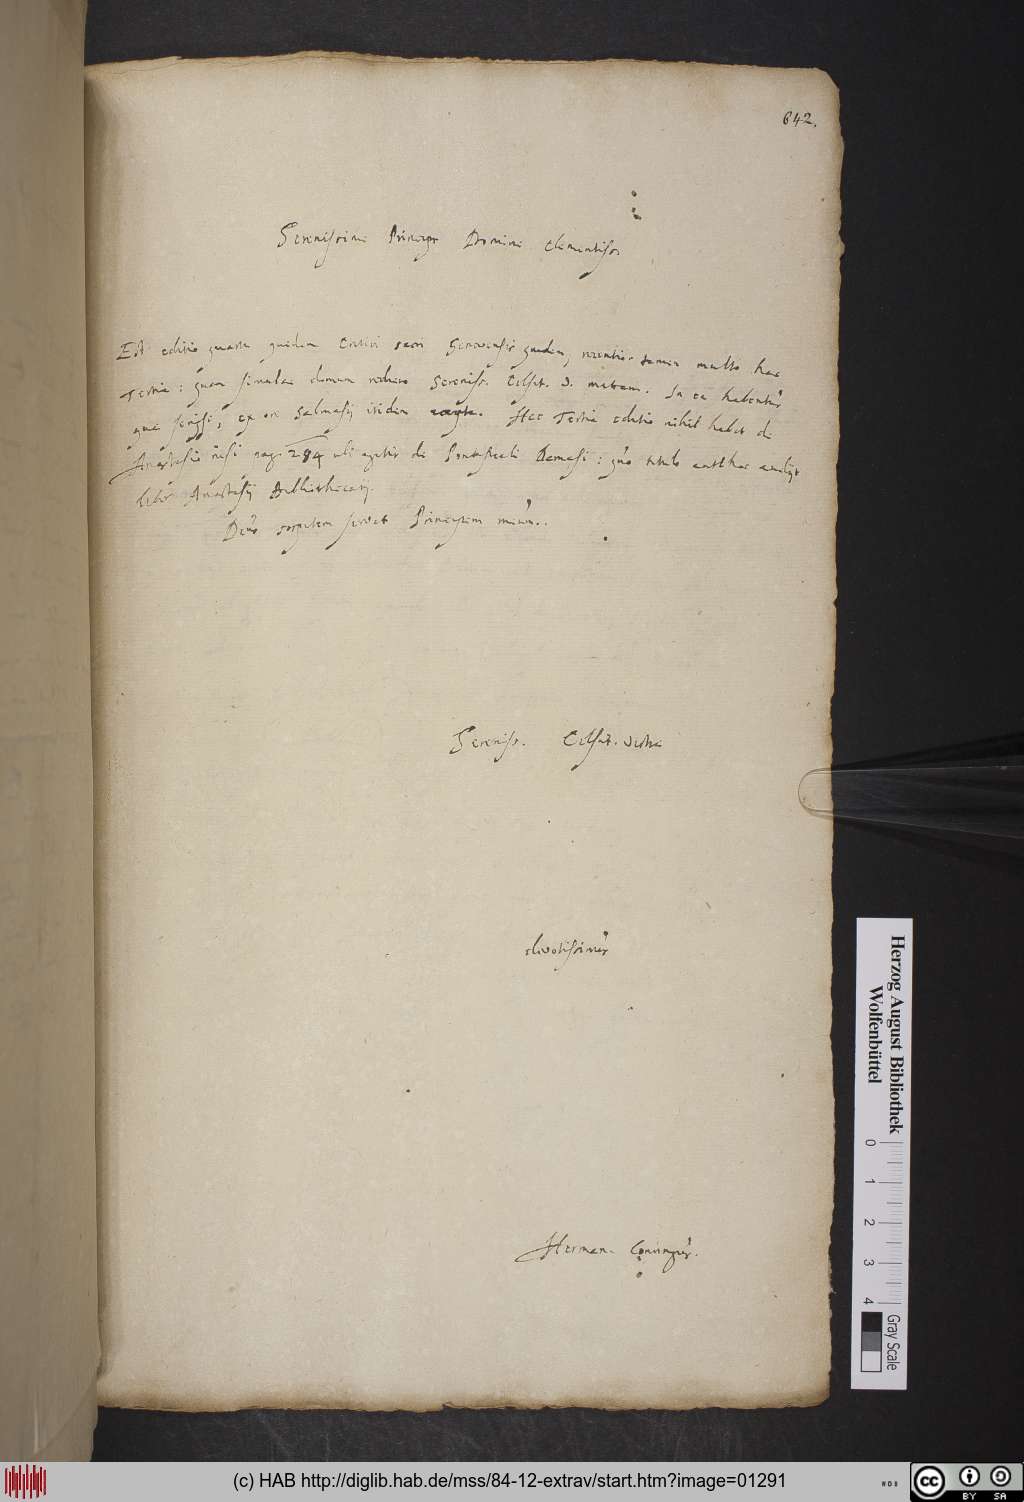 642.
Serenissime Princeps Domine Clementiss.
Est editio quarta quidem Critici sacri Genevensis quidem, recentior tamen multo hac
Tertia: quam simulac domum rediero Sereniss. Celsit. V. mittam. In ea habentur
quæ scripsi, ex ore Salmasij itidem Hec Tertia editio nihil habet de
Anastasio nisi pag. 284 ubi agitur de Pontificali Damasi: quo titulo
libro Anastasij Bibliothecarij.
Deus sospitem servet Principem meum.
Sereniss. Celsit. Vestræ
devotissimus
Herman. Conringius.
Herzog August Bibliothek
Wolfenbüttel
0 1 2 3 4
Gray Scale
(c) HAB http://diglib.hab.de/mss/84-12-extrav/start.htm?image=01291
cc BY SA